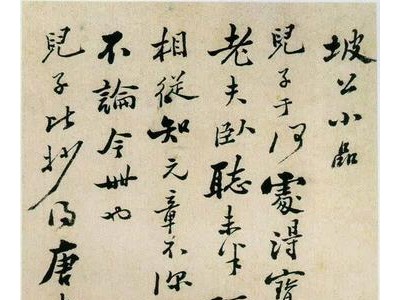 坡公小品
兒子于何處得寶
老夫臥聽未半
相從知元章不深
不論今世也
兒子比抄得唐